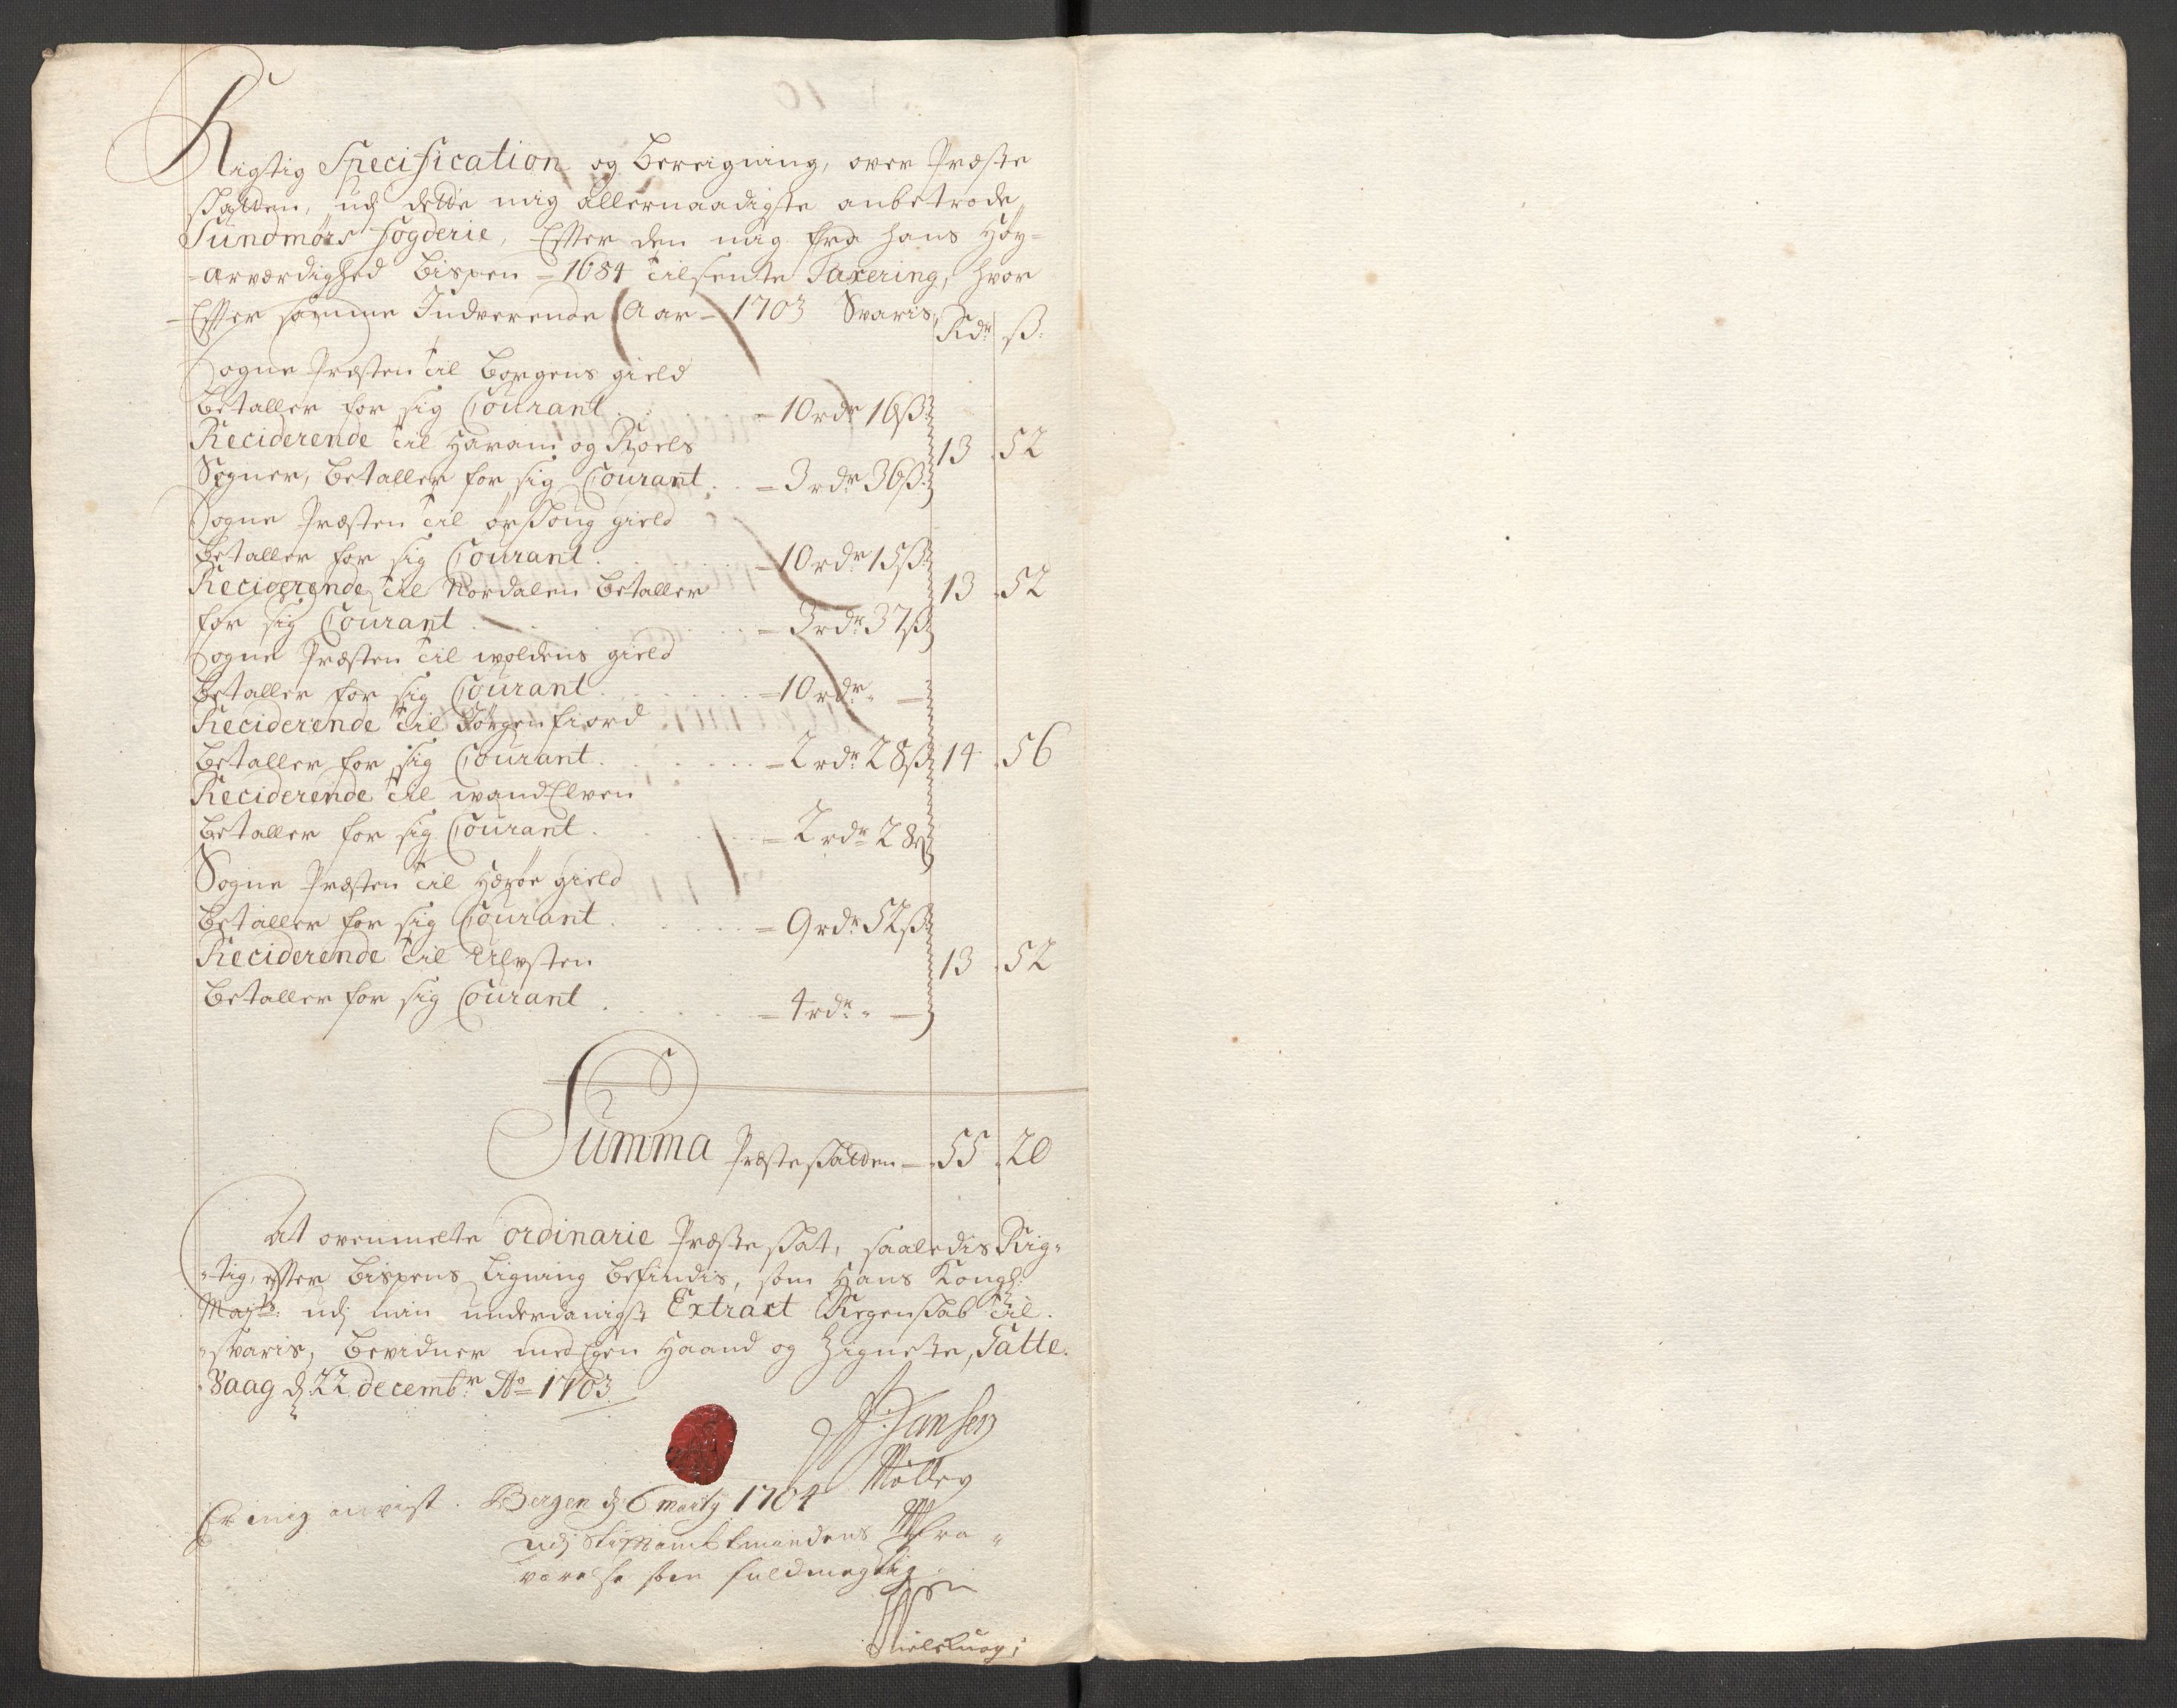 Rigtig Specification og Bereigning, over Præste
skatten, udj dette mig allernaadigste anbetrode
Sundmørs fogderie, Efter den mig fra hans Høy=
=arværdighed Bispen = 1684 tilsendte Taxering, hvor
Efter samme Indverende Aar = 1703 Svaris,
Rdr ß:
Sogne Præsten til Borgens gield
betaller for sig Courant . . . = 10 rdr 16 ß
Reciderende til Haram og
Sogner, betaller for sig Courant . . = 3 rdr 36 ß
13 . 52
Sogne Præsten til ørskoug gield
betaller for sig Courant . . . = 10 rdr 15 ß
Reciderende til Nordalen betaller
for sig Courant . . . = 3 rdr 37 ß
13 . 52
Sogne Præsten til woldens gield
betaller for sig Courant . . . = 10 rdr " —
Reciderende til Jørgenfiord
betaller for sig Courant . . . = 2 rdr 28 ß
14 . 56
Reciderende til wandElven
betaller for sig Courant . . . = 2 rdr 28 ß
Sogne Præsten til Herøe gield
betaller for sig Courant . . . = 9 rdr 52 ß
Reciderende til Ulfsten
13 . 52
betaller for sig Courant . . . = 4 rdr " —
Summa Præsteskatten — 55 . 20
At ovenmelte ordinarie Præsteskat, saaledis Rig=
=tig, efter Bispens Ligning befindis, som Hans Kongl:
Mayts: udj min underdanigst Extract Regenskab til
=svaris, bevidner med Egen Haand og Zignete, Gatte=
=Vaag d 22 decembr Ao 1703
Hansen
Møller
Er mig anvist. Bergen d 6 marty 1704
udj Stiftamtmandens fra=
værelse som fuldmegtig